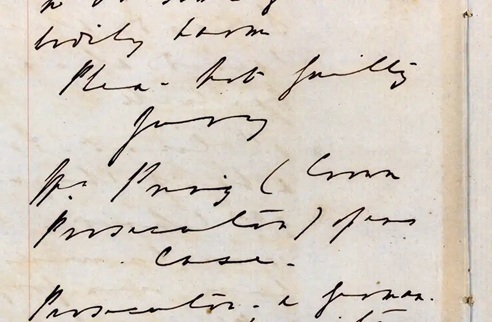 bodily harm
Plea - Not guilty
Jury
Mr (Crown
Prosecutor) opens
Case -
Prosecutor - a german.